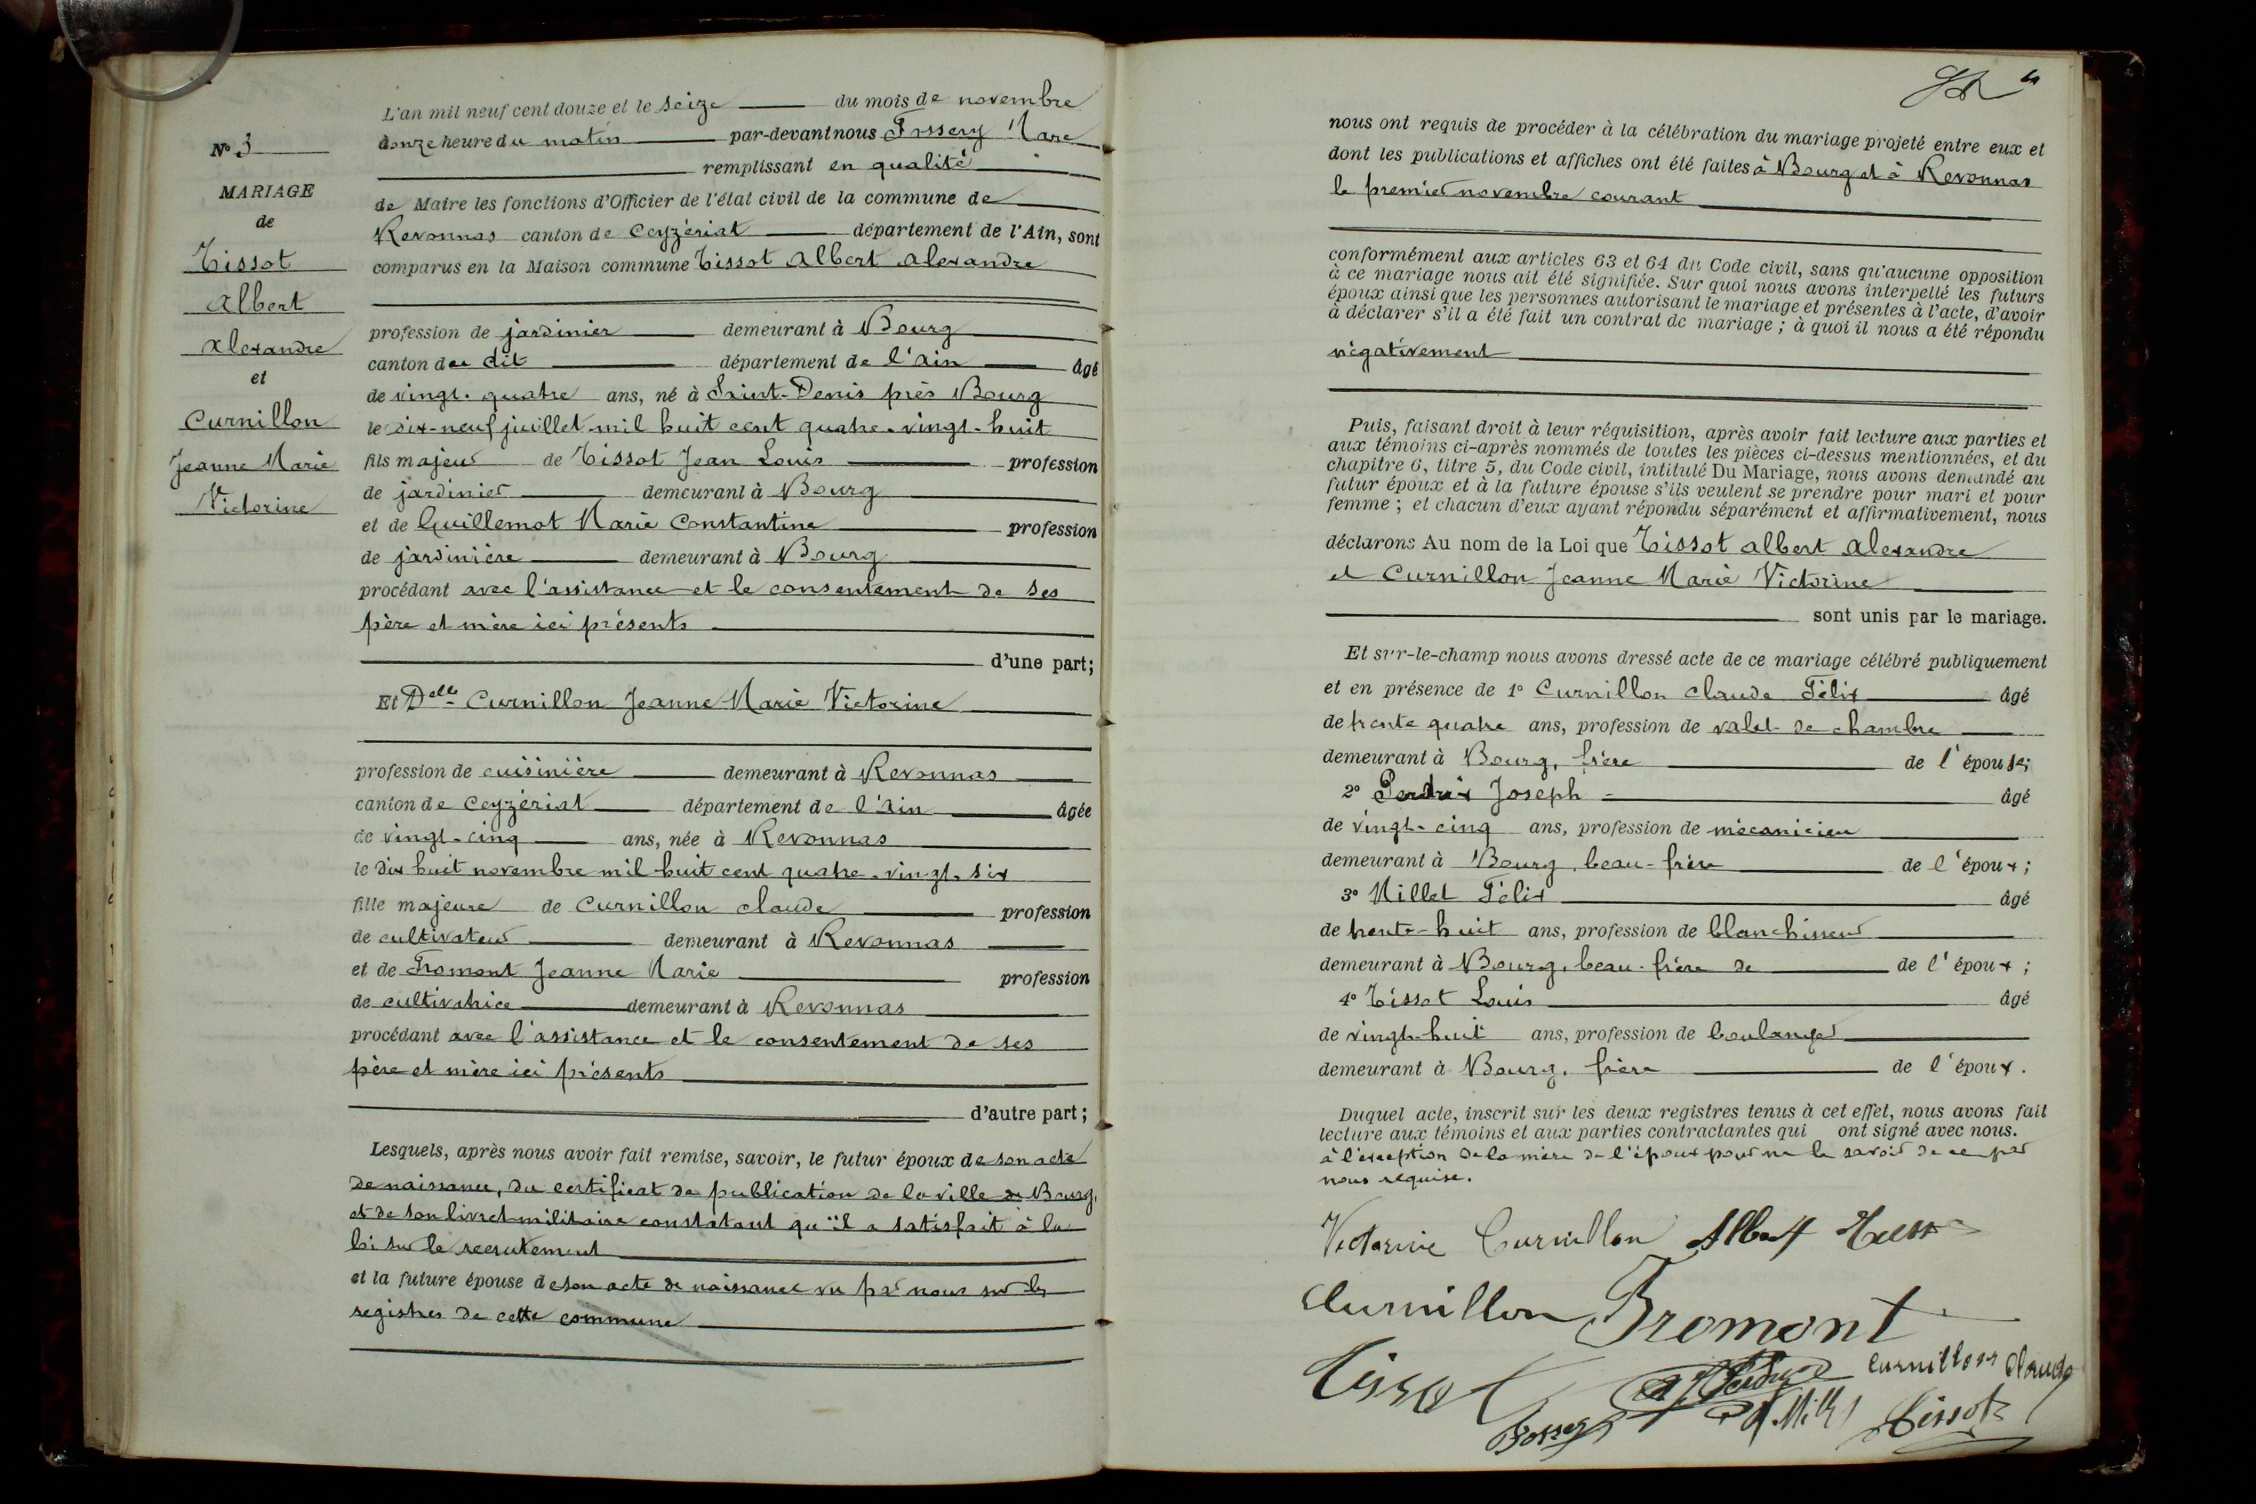 N° 3
MARIAGE
de
Tissot
Albert
Alexandre
et
Curnillon
Jeanne Marie
Victorine
L'an mil neuf cent douze et le seize du mois de novembre
à onze heure du matin par-devant nous Fossery Marc
remplissant en qualité
de Maire les fonctions d'Officier de l'état civil de la commune de
Revonnas canton de Ceyzériat département de l'Ain, sont
comparus en la Maison commune Tissot Albert Alexandre
profession de jardinier demeurant à Bourg
canton du dit département de l'Ain âgé
de vingt-quatre ans, né à Saint-Denis près Bourg
le dix-neuf juillet mil huit cent quatre-vingt-huit
fils majeur de Tissot Jean Louis profession
de jardinier demeurant à Bourg
et de Guillemot Marie Constantine profession
de jardinière demeurant à Bourg
procédant avec l'assistance et le consentement de ses
père et mère ici présents
d'une part;
Et Delle Curnillon Jeanne Marie Victorine
profession de cuisinière demeurant à Revonnas
canton de Ceyzériat département de l'Ain âgée
de vingt-cinq ans, née à Revonnas
le dix huit novembre mil huit cent quatre-vingt-six
fille majeure de Curnillon Claude profession
de cultivateur demeurant à Revonnas
et de Fromont Jeanne Marie profession
de cultivatrice demeurant à Revonnas
procédant avec l'assistance et le consentement de ses
père et mère ici présents
d'autre part;
Lesquels, après nous avoir fait remise, savoir, le futur époux de son acte
de naissance, du certificat de publication de la ville de Bourg,
et de son livret militaire constatant qu'il a satisfait à la
loi sur le recrutement
et la future épouse de son acte de naissance vu par nous sur les
registres de cette commune
4
nous ont requis de procéder à la célébration du mariage projeté entre eux et
dont les publications et affiches ont été faites à Bourg et à Revonnas
le premier novembre courant
conformément aux articles 63 et 64 du Code civil, sans qu'aucune opposition
à ce mariage nous ait été signifiée. Sur quoi nous avons interpellé les futurs
époux ainsi que les personnes autorisant le mariage et présentes à l'acte, d'avoir
à déclarer s'il a été fait un contrat de mariage ; à quoi il nous a été répondu
négativement
Puis, faisant droit à leur réquisition, après avoir fait lecture aux parties et
aux témoins ci-après nommés de toutes les pièces ci-dessus mentionnées, et du
chapitre 6, titre 5, du Code civil, intitulé Du Mariage, nous avons demandé au
futur époux et à la future épouse s'ils veulent se prendre pour mari et pour
femme ; et chacun d'eux ayant répondu séparément et affirmativement, nous
déclarons Au nom de la Loi que Tissot Albert Alexandre
et Curnillon Jeanne Marie Victorine
sont unis par le mariage.
Et sur-le-champ nous avons dressé acte de ce mariage célébré publiquement
et en présence de 1° Curnillon Claude Félix âgé
de trente quatre ans, profession de valet de chambre
demeurant à Bourg, frère de l'épouse;
2° Perdrix Joseph âgé
de vingt-cinq ans, profession de mécanicien
demeurant à Bourg, beau-frère de l'époux ;
3° Millet Félix âgé
de trente-huit ans, profession de blanchisseur
demeurant à Bourg, beau-frère de de l'époux ;
4° Tissot Louis âgé
de vingt-huit ans, profession de boulanger
demeurant à Bourg, frère de l'époux.
Duquel acte, inscrit sur les deux registres tenus à cet effet, nous avons fait
lecture aux témoins et aux parties contractantes qui ont signé avec nous.
à l'exception de la mère de l'époux pour ne le savoir de ce par
nous requise.
Victorine Curnillon Albert Tissot
Curnillon Fromont
Tissot Perdrix Curnillon Claude
Fossery Millet Tissot